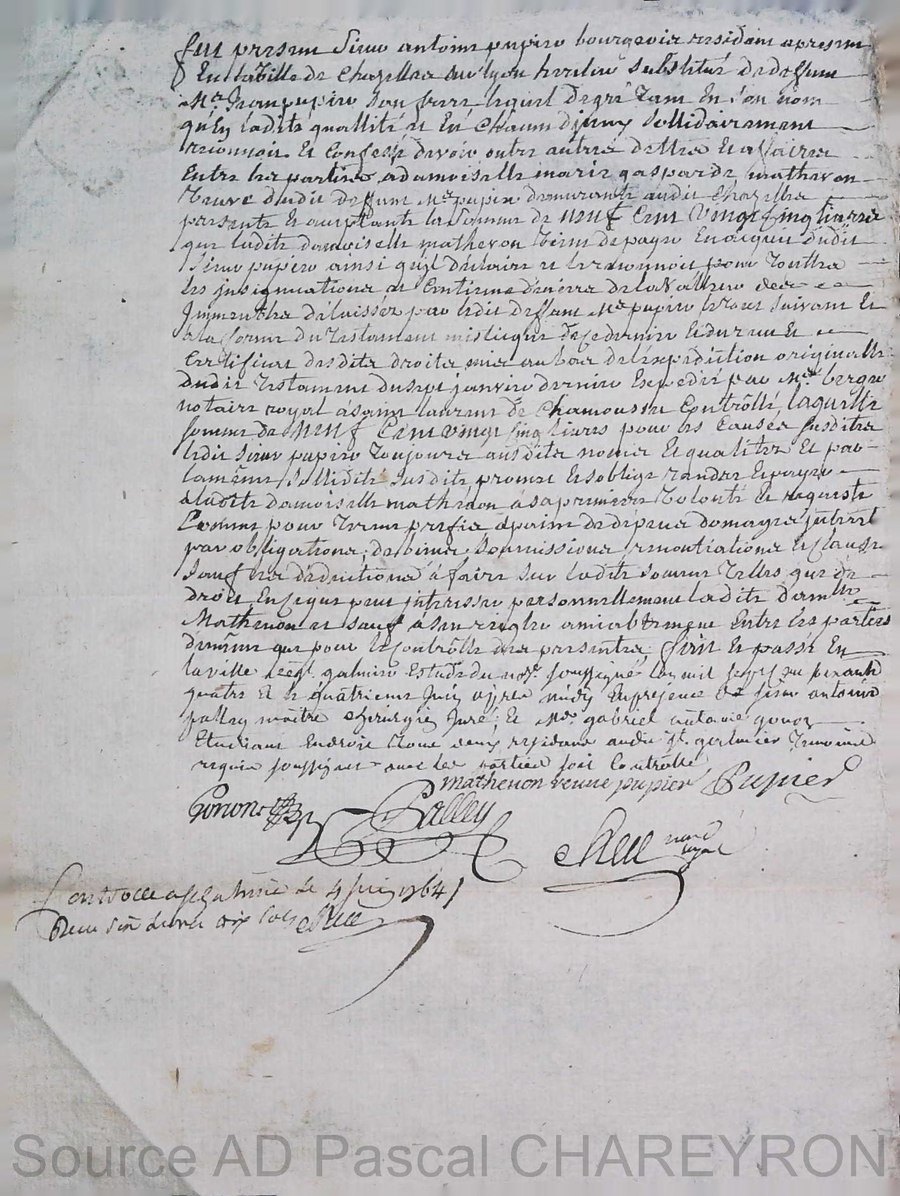 fut presen sieur antoine pupier bourgeois residant apresent
En la Ville de Chazelles sur lyon heritier substitué de deffunt
Me. Jean pupier son frere lequel de gré tant en son nom
qu'en ladite quallité et en Chacun d'iceux sollidairement
reconnoit et Confesse devoir outre autres dettes et affaires
Entre les parties a damoiselle marie gasparde matheron
Veuve dudit deffunt Me. pupier demeurante audit Chazelles
presente et acceptante la somme de neuf Cent Vingt Cinq livres
que ladite damoiselle matheron Vient de payer En acquit dudit
sieur pupier ainsi qu'il declaire et le reconnoit pour touttes
les insignuations et Centieme denier de la Valleur des
Immeubles delaissés par ledit deffunt Me. pupier le tout suivant et
a la forme du testament mistique de ce dernier et du receu et
Certifficat desdits droits mis au bas de l'expedition originalle
dudit testament du sept janvier dernier Expedié par Me.
notaire royal a saint laurent de Chamousset Controllé, laquelle
somme de neuf Cent vingt cinq livres pour les causes susdittes
ledit sieur pupier toujours ausdits noms et qualités et par
la même sollidité susdite promet et s'oblige rendre et payer
a ladite damoiselle matheron a sa premiere Volonté et requeste
Comme pour terme prefix a peine de depens domages interest
par obligations de biens soumissions renontiations et clauses
sauf les deductions a faire sur ladite somme telles que de
droit En ce qui peut interesser personnellement ladite damlle
Matheron et sauf a sen regler amiablement Entre les parties
de même que pour le controlle des presentes, fait et passé En
la ville de st galmier Estude du nore. soussigné l'an mil sept cent soixante
quatre et le quatrieme juin apres midy En presence de sieur antoine
palley maitre chirurgien juré, et Me. gabriel antoine gonon
Etudiant En droit tous deux residans audit st. galmier temoins
requis soussignés avec les parties soit Controllé
matheron veuve pupier Pupier
Gonon Palley
nore royal
Controllé a st galmier le 4 juin 1764
Receu sept livres dix sols
Source AD Pascal CHAREYRON